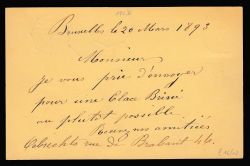 Bruxelles le 20 Mars 1893
Monsieur
je vous prie d'envoyer
pour une Clac Brisée
au plutot possible
amitiés
Albrechts rue de Brabant 46.